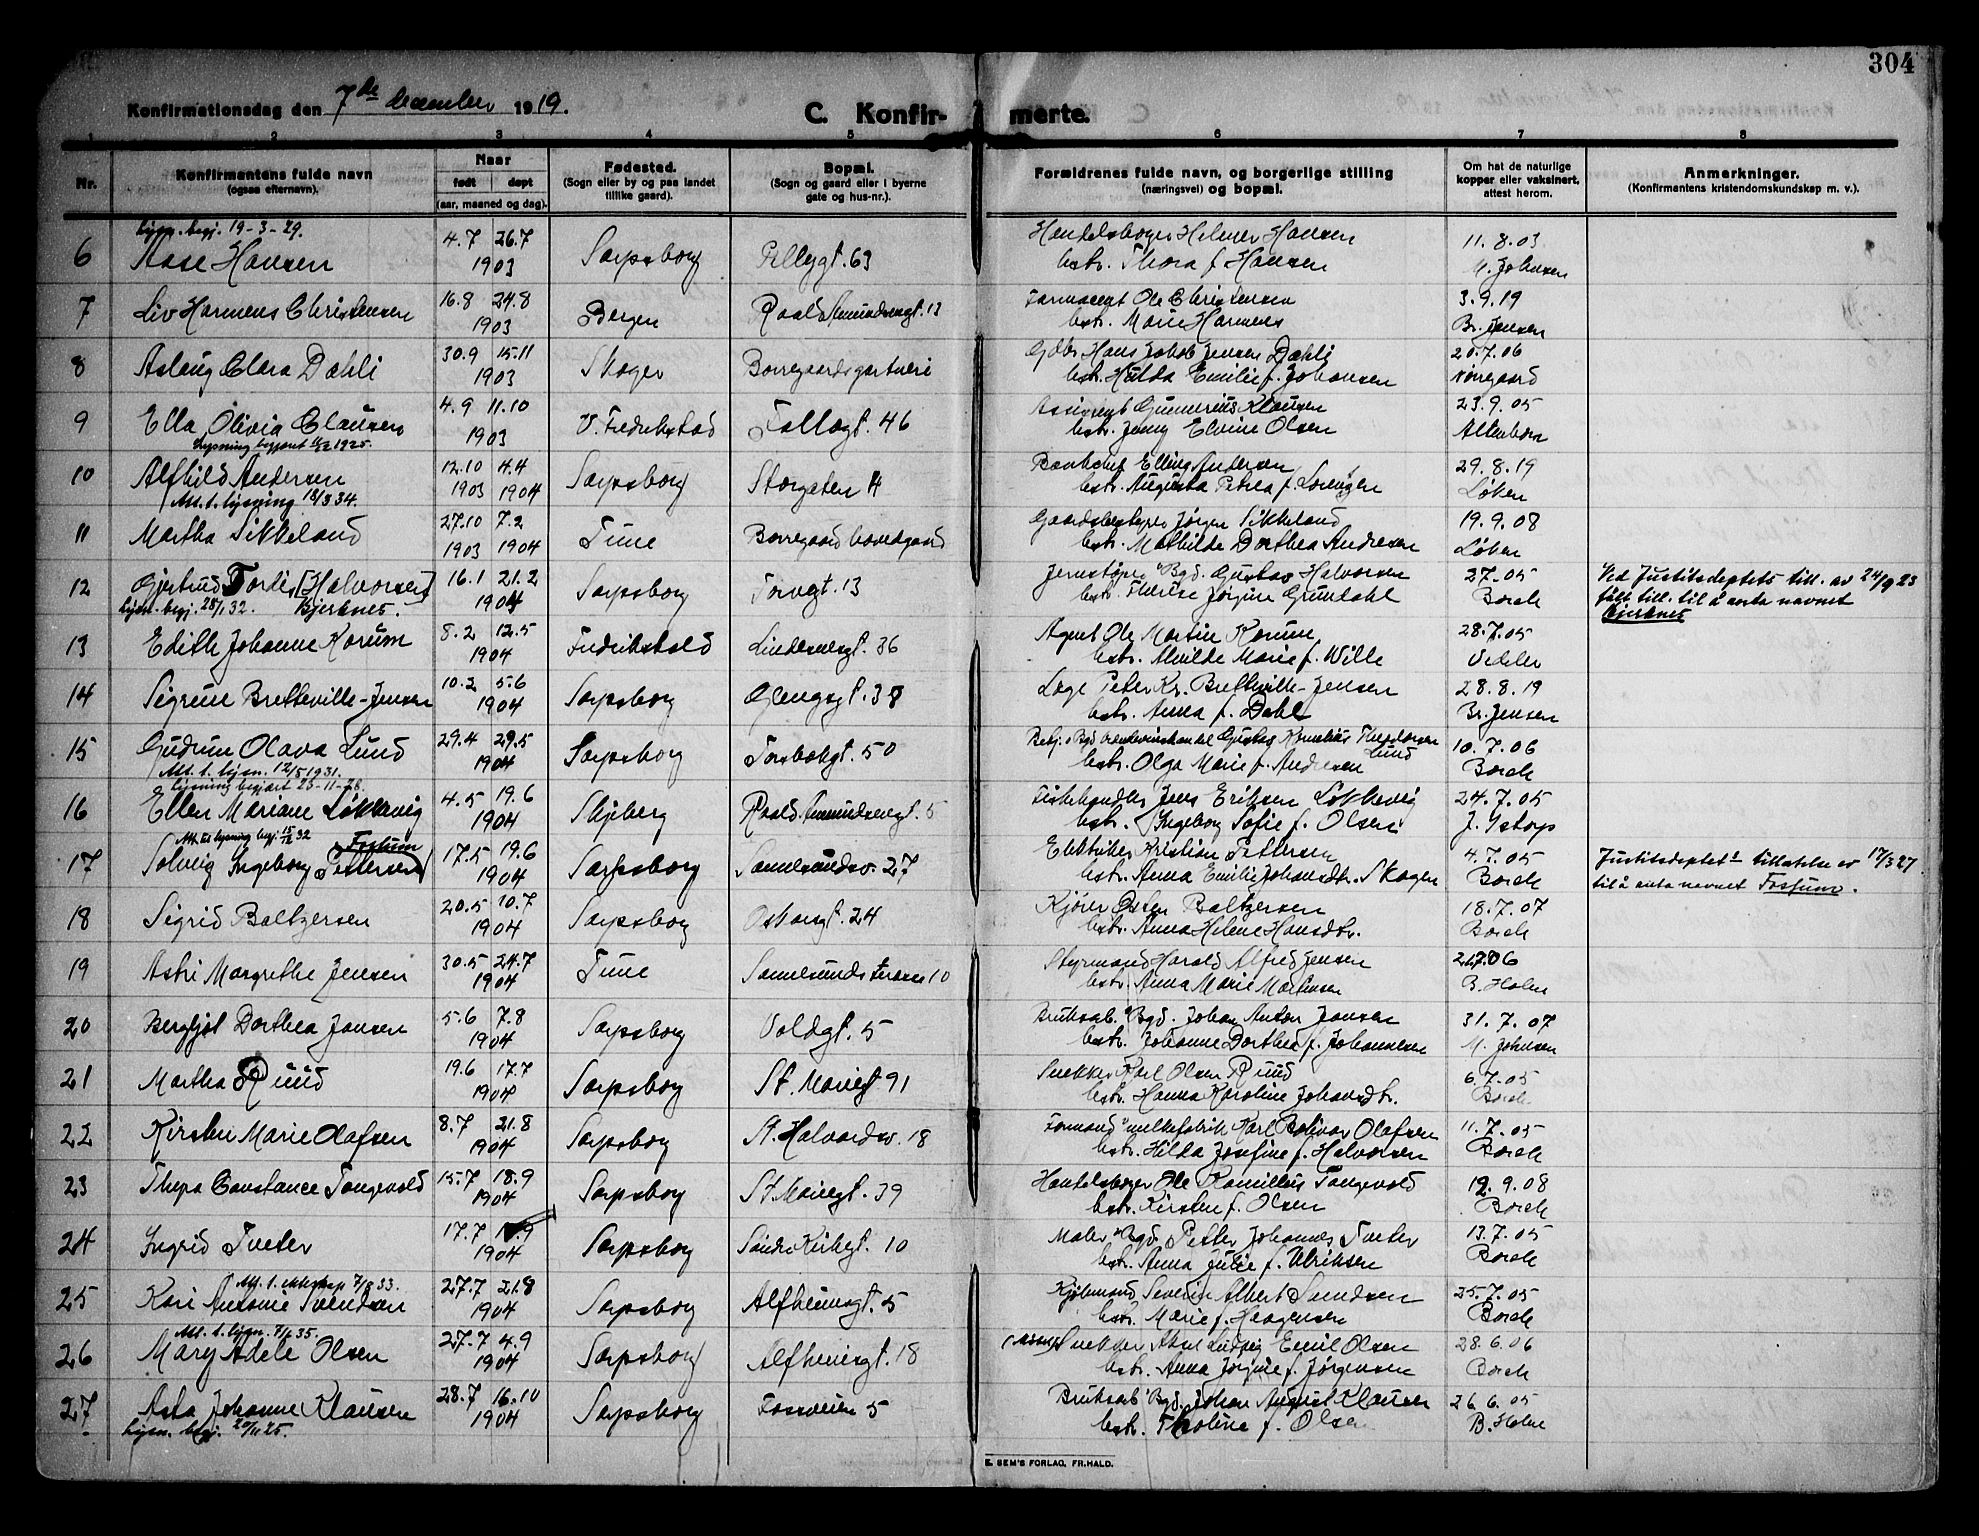 304
Konfirmationsdag den 7de december 1919.
C. Konfir-merte.
1 2 3 4 5 6 7 8
Nr.
Konfirmantens fulde navn
(ogsaa efternavn).
Naar
født døpt
(aar, maaned og dag).
Fødested.
(Sogn eller by og paa landet
tillike gaard).
Bopæl.
(Sogn og gaard eller i byerne
gate og hus-nr.).
Forældrenes fulde navn, og borgerlige stilling
(næringsvei) og bopæl.
Om hat de naturlige
kopper eller vaksinert,
attest herom.
Anmerkninger.
(Konfirmantens kristendomskundskap m. v.).
lysn. begj. 19-3-29.
6 Aase Hansen 4.7 26.7 Sarpsborg Pellygt. 63 Handelsborger Helmer Hansen 11.8.03
1903 bstr. Thora f. Hansen M. Johnsen
7 Liv Harmens Christensen 16.8 24.8 Bergen Roald Amundsengt. 13 Farmaceut Ole Christensen 3.9.19
1903 hstr. Marie Harmens Br. Jensen
8 Aslaug Clara Dahli 30.9 15.11 Skoger Borregaards gartneri Gdbr. Hans Jakob Jensen Dahli 20.7.06
1903 hstr. Hulda Emilie f. Johansen Nörregaard
9 Ella Olivia Clausen 4.9 11.10 V. Fredrikstad Tollbgt. 46 Gunnerius Klausen 23.9.05
1903 hstr. Jenny Elvine Olsen Altenborn
Lysning begjært 1925.
10 Alfhild Andersen 12.10 4.4 Sarpsborg Storgaten 14 Elling Andersen 29.8.19
1903 1904 hstr. Augusta Petrea f. Lorentzen Løken
Att. t. lysning 18/3 34.
11 Martha Sikkeland 27.10 7.2 Tune Borregaard hovedgaard Gaardsbestyrer Jørgen Sikkeland 19.9.08
1903 1904 hstr. Mathilde Dorthea Andresen Løken
12 Gjertrud Tordis [Halvorsen] 16.1 21.2 Sarpsborg Torvgt. 13 Jernstöper Bgd. Gustav Halvorsen 27.05 Ved Justitsdeptets till. av 24/9 23
lysn. begj. 25/1 32. Bjerknes. 1904 hstr. Therese Jørgine Grundahl Borch fått till. til å anta navnet
Bjerknes
13 Edith Johanne Korum 8.2 12.5 Fredrikshald Lindemansgt. 36 Agent Ole Martin Korum 28.7.05
1904 hstr. Alvilde Marie f. Wille Vedeler
14 Sigrun Bretteville-Jensen 10.2 5.6 Sarpsborg Glengsgt. 38 Læge Peter Kr. Bretteville-Jensen 28.8.19
1904 hstr. Anna f. Dahl Br. Jensen
15 Gudrun Olava Lund 29.4 29.5 Sarpsborg Torsbækgt. 50 Gustav Kornelius Theodorsen Lund 10.7.06
1904 hstr. Olga Marie f. Andresen Borch
Att. t. lysn. 12/5 1931.
lysning begjært 23-11-28.
16 Ellen Mariane Løkkevig 4.5 19.6 Skjeberg Roald Amundsengt. 5 Fiskehandler Jens Eriksen Løkkevig 24.7.05
1904 hstr. Ingeborg Sofie f. Olsen J. Ystorp
Att. til lysning begj. 15/12 32
17 Solvig Ingeborg (Pettersen) Fossum 17.5 19.6 Sarpsborg Sannesundsv. 27 Elektriker Kristian Pettersen 4.7.05 Justitsdeptets tillatelse av 17/3 27
1904 hstr. Anna Emilie Johansdtr. Skogen Borch til å anta navnet Fossum.
18 Sigrid Baltzersen 20.5 10.7 Sarpsborg Oskarsgt. 24 Kjører Osten Baltzersen 18.7.07
1904 hstr. Anna Helene Hansdtr. Borch
19 Astri Margrethe Jensen 30.5 24.7 Tune Sannesunds terasse 10 Styrmand Harald Alfred Jensen 21.7.06
1904 hstr. Anna Marie Mathisen B. Holm
20 Bergljot Dorthea Jansen 5.6 7.8 Sarpsborg Voldgt. 5 Bruksarb. Bgd. Johan Anton Jansen 31.7.07
1904 hstr. Johanne Dorthea f. Johannesen M. Johnsen
21 Martha Ruud 19.6 17.7 Sarpsborg St. Mariegt 91 Snekker Karl Olsen Ruud 6.7.05
1904 hstr. Hanna Karoline Johansdtr. Borch
22 Kirsten Marie Olafsen 8.7 21.8 Sarpsborg St. Halvardsv. 18 Formand melkefabrik Karl Bolivar Olafsen 11.7.05
1904 hstr. Hilda Josefine f. Halvorsen Borch
23 Constance Tangevold 15.7 18.9 Sarpsborg St Mariegt. 39 Handelsborger Ole Kamillus Tangevold 12.9.08
1904 hstr. Kirsten f. Olsen Borch
24 Ingrid Tveter 17.7 Sarpsborg Søndre Kirkegt. 10 Maler Bgd. Petter Johannes Tveter 13.7.05
1904 hstr. Anna Julie f. Ulriksen Borch
Att. t. ekteskap 7/8 33.
25 Kari Antonie Svendsen 27.7 21.8 Sarpsborg Alfheimsgt. 5 Kjøbmand Severin Albert Svendsen 25.7.05
1904 hstr. Marie f. Haagensen Borch
Att. t. lysn. 7/1 35.
26 Mary Adele Olsen 27.7 4.9 Sarpsborg Alfheimsgt. 18 Snekker Aksel Ludvig Emil Olsen 28.6.06
1904 hstr. Anna Jørgine f. Jørgensen Borch
27 Asta Johanne Klausen 28.7 16.10 Sarpsborg Fossveien 5 Bruksarb. Bgd. Johan August Klausen 26.6.05
1904 hstr. Tholine f. Olsen B. Holm
lysn. begj. 20/11 25.
E. SEM'S FORLAG, FR.HALD.